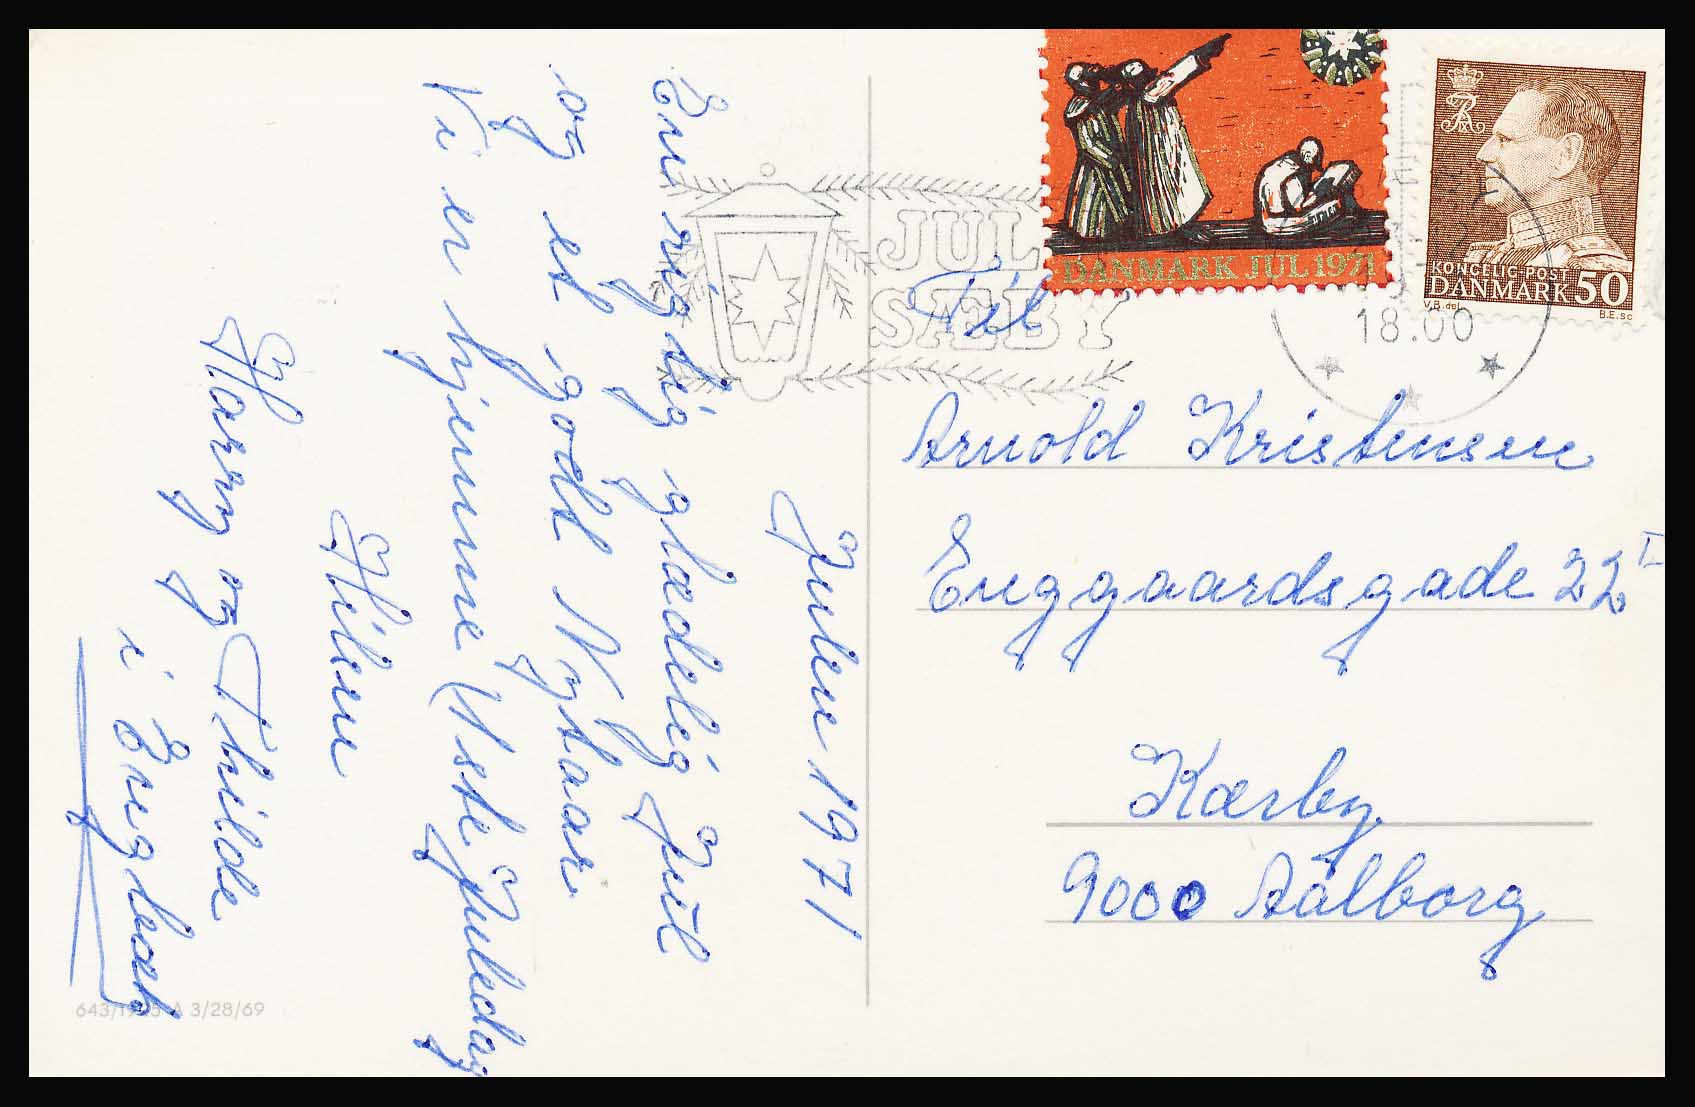 Julen 1971
En rigtig glædelig Jul
og et godt Nytaar.
Vi er hjemme 1ste Juledag
Hilsen
Harry og Thilde
i Englbæk
643/1945 A 3/28/69
JUL
SÆBY
DANMARK JUL 1971
KONGELIG POST
DANMARK 50
V.B. del.
B.E. sc
18.00
Til
Arnold Kristensen
Enggaardsgade 22 I
Kærby
9000 Aalborg